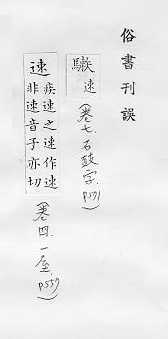 俗書刊誤
速(卷七石鼓字. p.571)
速 疾速之速作速
非速音子亦切
(卷四.一屋. p.557)